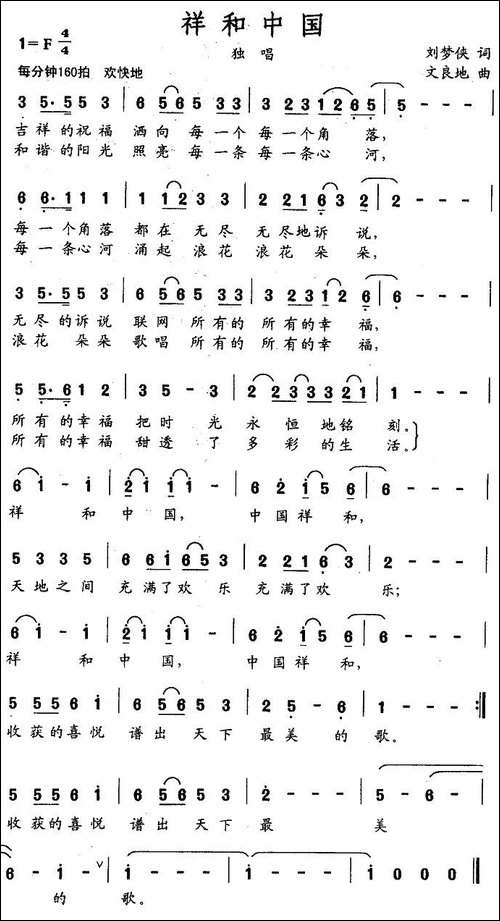 祥和中国
1=F 4/4
独唱
刘梦侠 词
每分钟160拍 欢快地
文良地 曲
3 5·5 5 3 | 6 5 6 5 3 3 | 3 2 3 1 2 6 5 | 5 - - - |
吉祥的祝福 洒向 每一个 每一个角 落,
和谐的阳光 照亮 每一条 每一条心 河,
6 6·1 1 1 | 1 1 2 3 3 | 3 2 1 2 1 6 3 | 2 - - - |
每一个角落 都在 无尽 无尽地诉 说,
每一条心河 涌起 浪花 浪花 朵朵,
3 5·5 5 3 | 6 5 6 5 3 3 | 3 2 3 1 2 6 | 6 - - - |
无尽的诉说 联网 所有的 所有的幸 福,
浪花 朵朵 歌唱 所有的 所有的幸 福,
5 5·6 1 2 | 3 5 - 3 | 2 2 3 3 3 2 1 | 1 - - - |
所有的幸福 把时 光 永 恒地铭 刻。
所有的幸福 甜透 了 多 彩的生 活。
6 i - i | 2 i i i | 6 2 i 5 6 | 6 - - - |
祥 和 中 国, 中国祥 和,
5 3 3 5 | 6 6 i 6 5 3 | 2 2 1 6 3 | 2 - - - |
天地之间 充满了欢 乐 充满了欢 乐;
6 i - i | 2 i i i | 6 2 i 5 6 | 6 - - - |
祥 和 中 国, 中国祥 和,
5 5 5 6 i | 6 5 6 5 3 | 2 5 - 6 | 1 - - - :‖
收获的喜悦 谱出 天下 最美 的 歌。
5 5 5 6 i | 6 5 6 5 3 | 2 - - - | 5 - 6 - |
收获的喜悦 谱出 天下 最 美
6 - i - ∨ | i - - - | i - - - | i 0 0 0 ‖
的 歌。